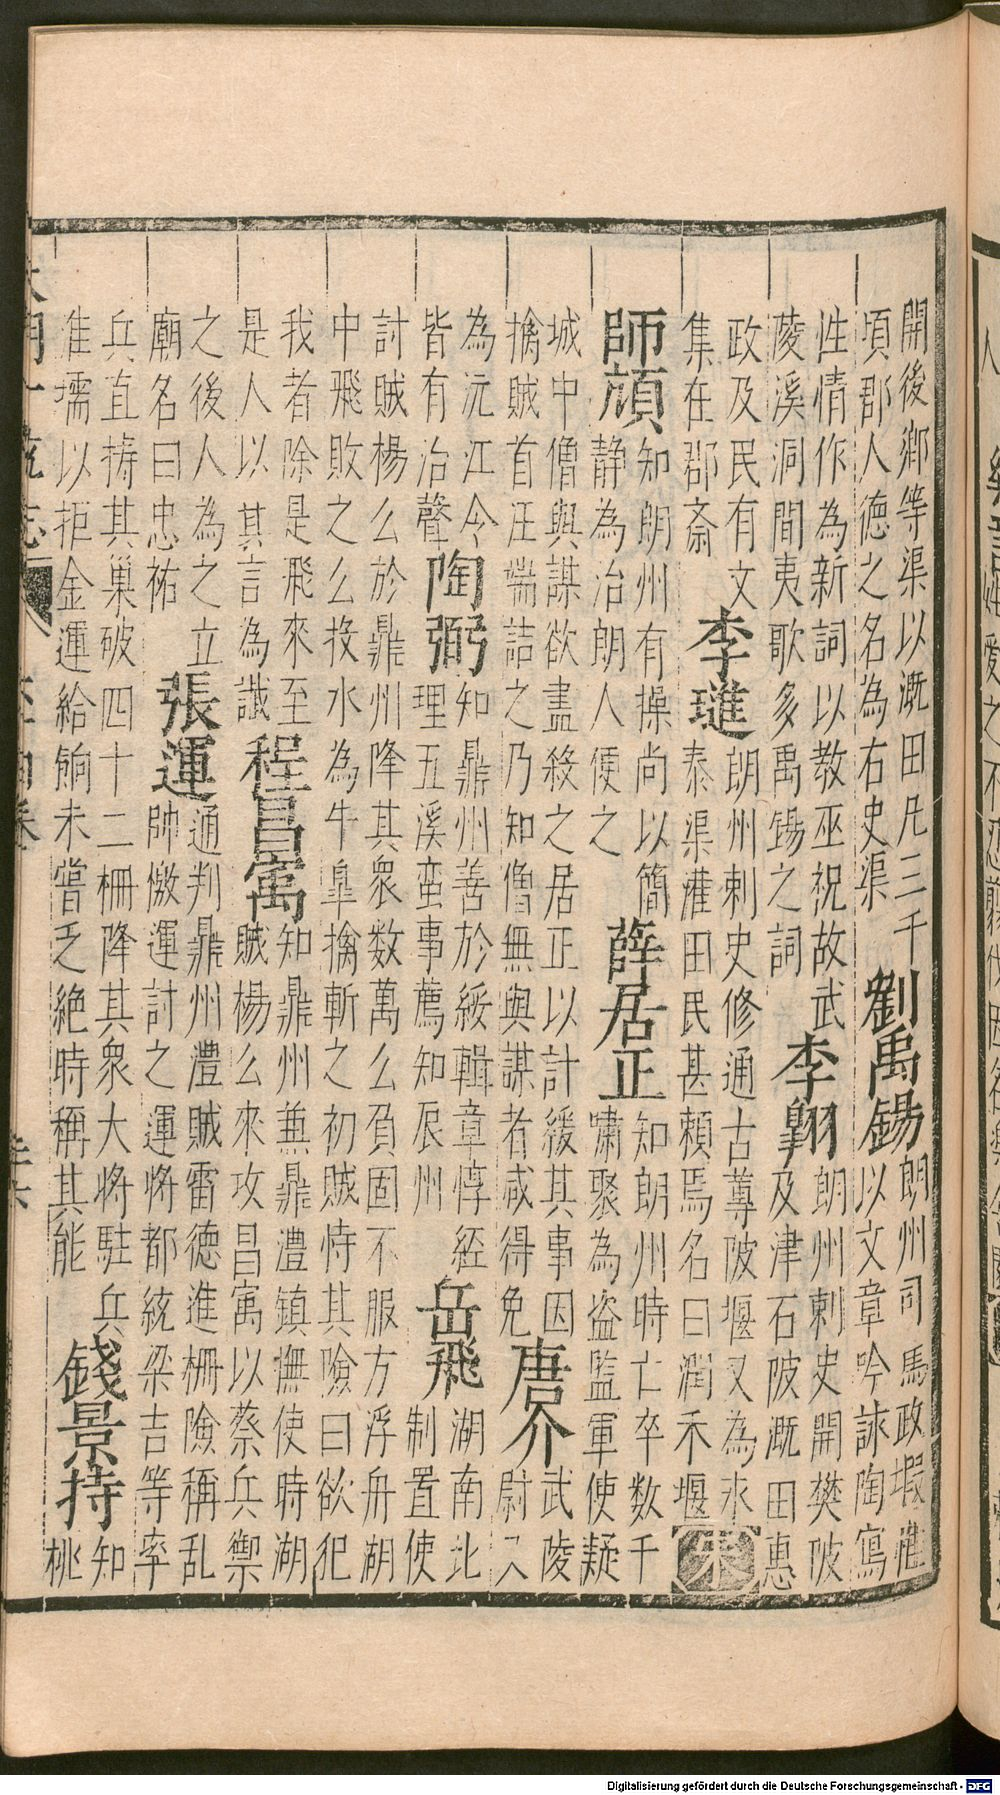 開後鄉等渠以溉田凡三千
頃郡人德之名為右史渠
劉禹錫
朗州司馬政暇惟
以文章吟詠陶寫
性情作為新詞以教巫祝故武
陵溪洞間夷歌多禹錫之詞
李翱
朗州刺史開樊陂
及津石陂溉田惠
政及民有文
集在郡齋
李璡
朗州刺史修通古蓴陂堰又為永
泰渠灌田民甚賴焉名曰潤禾堰
宋
師頏
知朗州有操尚以簡
靜為治朗人便之
薛居正
知朗州時亡卒数千
嘯聚為盗監軍使疑
城中僧與謀欲盡殺之居正以計緩其事因
擒賊首汪端詰之乃知僧無與謀者咸得免
唐介
武陵
尉又
為沅江令
皆有治聲
陶弼
知鼎州善於綏輯章惇經
理五溪蛮事薦知辰州
岳飛
湖南北
制置使
討賊楊么於鼎州降其衆数萬么負固不服方浮舟湖
中飛敗之么投水為牛皐擒斬之初賊恃其險曰欲犯
我者除是飛來至
是人以其言為讖
程昌㝢
知鼎州兼鼎澧鎮撫使時湖
賊楊么來攻昌㝢以蔡兵禦
之後人為之立
廟名曰忠祐
張運
通判鼎州澧賊雷德進柵險稱乱
帥儌運討之運將都統梁吉等率
兵直擣其巢破四十二柵降其衆大將駐兵
淮壖以拒金運給餉未嘗乏絶時稱其能
錢景持
知
桃
Digitalisierung gefördert durch die Deutsche Forschungsgemeinschaft - DFG